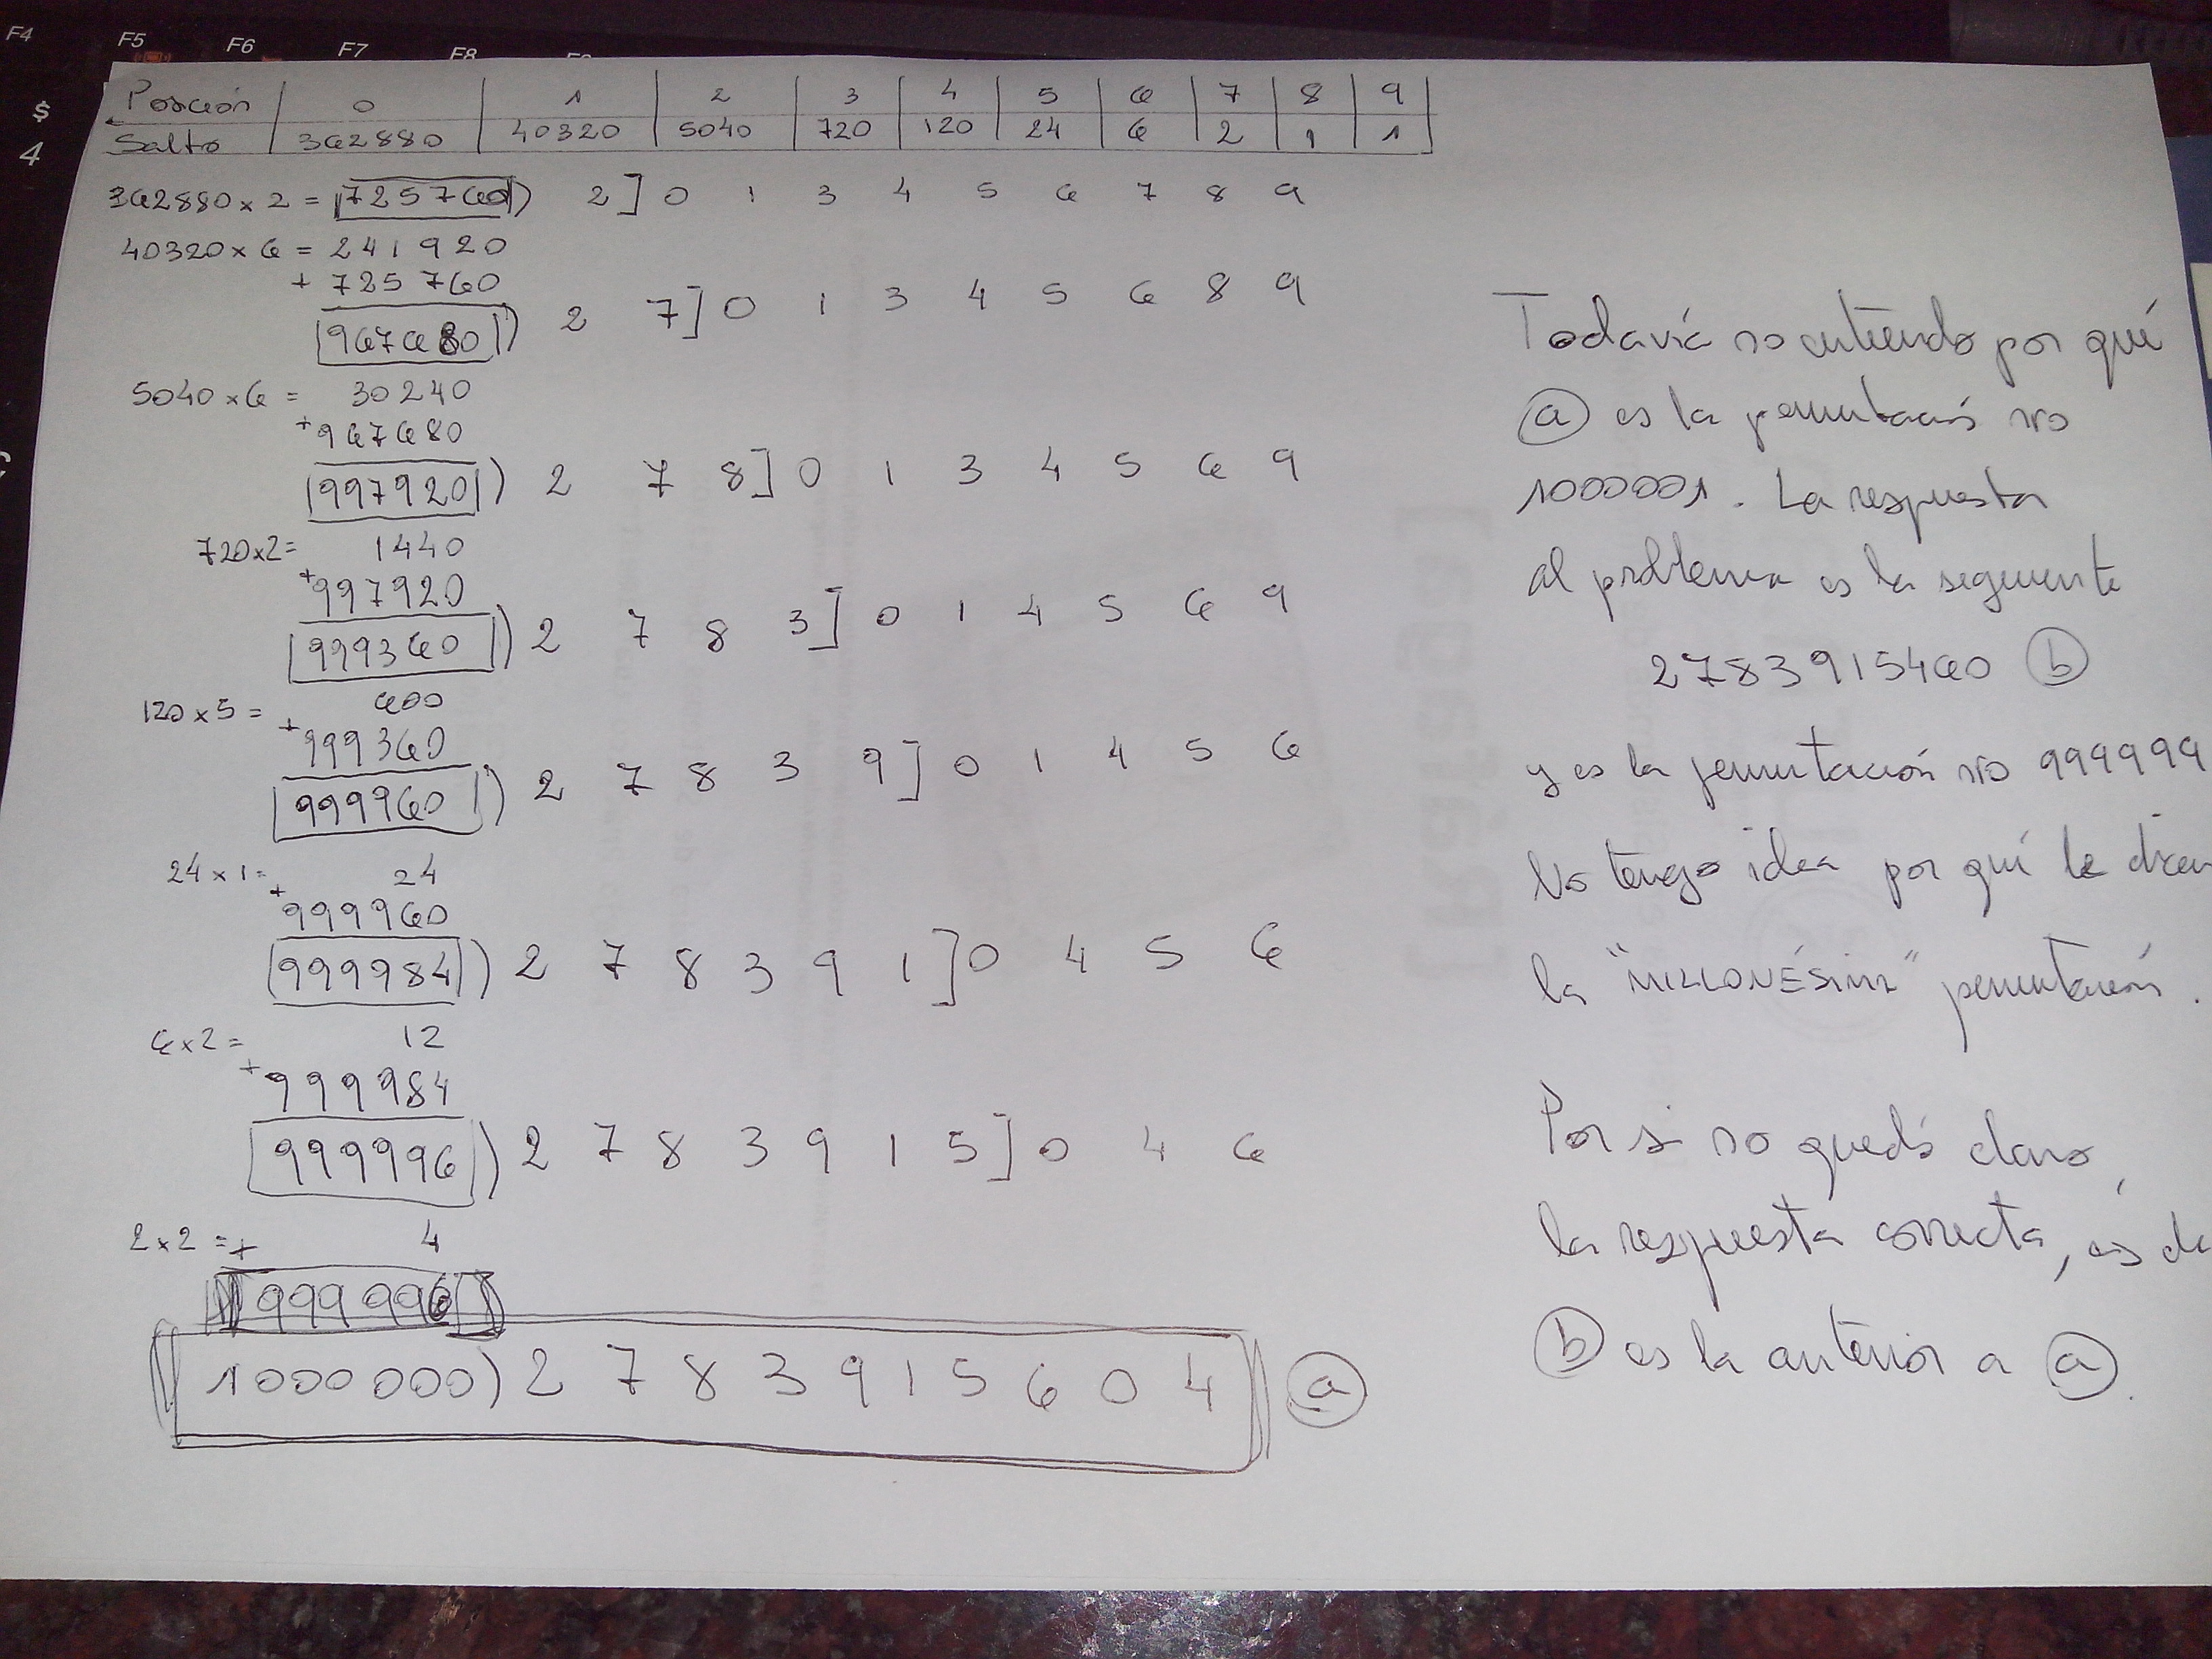 Posición | 0 | 1 | 2 | 3 | 4 | 5 | 6 | 7 | 8 | 9 |
Salto | 362880 | 40320 | 5040 | 720 | 120 | 24 | 6 | 2 | 1 | 1 |
362880 x 2 = 725760) 2] 0 1 3 4 5 6 7 8 9
40320 x 6 = 241920
+ 725760
967680) 2 7] 0 1 3 4 5 6 8 9
5040 x 6 = 30240
+ 967680
997920) 2 7 8] 0 1 3 4 5 6 9
720 x 2 = 1440
+ 997920
999360) 2 7 8 3] 0 1 4 5 6 9
120 x 5 = 600
+ 999360
999960) 2 7 8 3 9] 0 1 4 5 6
24 x 1 = 24
+ 999960
999984) 2 7 8 3 9 1] 0 4 5 6
6 x 2 = 12
+ 999984
999996) 2 7 8 3 9 1 5] 0 4 6
2 x 2 = 4
+ 999996
1000000) 2 7 8 3 9 1 5 6 0 4 (a)
Todavía no entiendo por qué
(a) es la permutación nro
1000001. La respuesta
al problema es la seguiente
2783915460 (b)
y es la permutación nro 999999
No tengo idea por qué le dicen
la "MILLONÉSIMA" permutación.
Por si no quedó claro,
la respuesta correcta, es de
(b) es la anterior a (a).
F4
$
4
F5
F6
F7
F8
[Ráfaga]